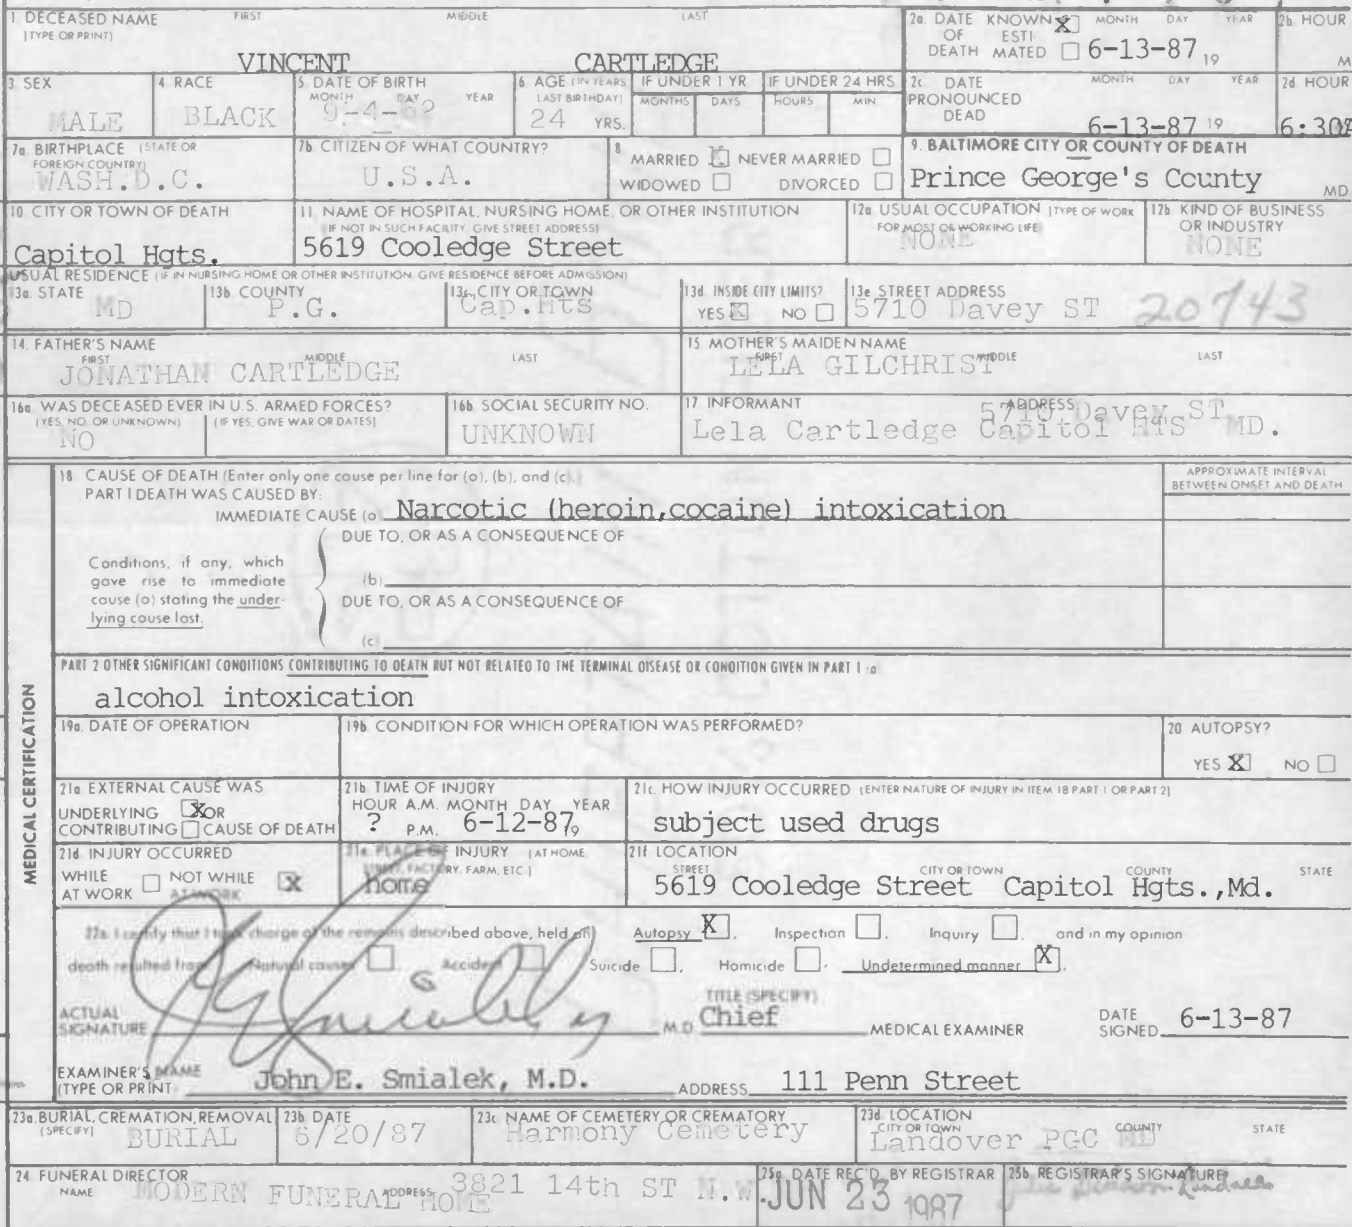 1 DECEASED NAME FIRST MIDDLE LAST
(TYPE OR PRINT)
VINCENT CARTLEDGE
2a. DATE KNOWN X MONTH DAY YEAR
OF ESTI-
DEATH MATED 6-13-87 19
2b HOUR
M
3 SEX
MALE
4 RACE
BLACK
5 DATE OF BIRTH
MONTH DAY YEAR
9-4-62
6 AGE (IN YEARS
LAST BIRTHDAY)
24 YRS.
IF UNDER 1 YR
MONTHS DAYS
IF UNDER 24 HRS
HOURS MIN
2c DATE MONTH DAY YEAR
PRONOUNCED
DEAD
6-13-87 19
2d HOUR
6:30
7a BIRTHPLACE (STATE OR
FOREIGN COUNTRY)
WASH.D.C.
7b CITIZEN OF WHAT COUNTRY?
U.S.A.
8
MARRIED X NEVER MARRIED
WIDOWED DIVORCED
9. BALTIMORE CITY OR COUNTY OF DEATH
Prince George's Ccunty MD
10 CITY OR TOWN OF DEATH
Capitol Hgts.
11 NAME OF HOSPITAL, NURSING HOME, OR OTHER INSTITUTION
(IF NOT IN SUCH FACILITY, GIVE STREET ADDRESS)
5619 Cooledge Street
12a USUAL OCCUPATION (TYPE OF WORK
FOR MOST OF WORKING LIFE)
NONE
12b KIND OF BUSINESS
OR INDUSTRY
NONE
USUAL RESIDENCE (IF IN NURSING HOME OR OTHER INSTITUTION GIVE RESIDENCE BEFORE ADMISSION)
13a. STATE
MD
13b COUNTY
P.G.
13c. CITY OR TOWN
Cap.Hts
13d. INSIDE CITY LIMITS?
YES X NO
13e STREET ADDRESS
5710 Davey ST 20743
14. FATHER'S NAME
FIRST MIDDLE LAST
JONATHAN CARTLEDGE
15 MOTHER'S MAIDEN NAME
FIRST MIDDLE LAST
LELA GILCHRIST
16a WAS DECEASED EVER IN U.S. ARMED FORCES?
(YES, NO, OR UNKNOWN) (IF YES, GIVE WAR OR DATES)
NO
16b SOCIAL SECURITY NO.
UNKNOWN
17 INFORMANT ADDRESS
5710 Davey ST
Lela Cartledge Capitol HTS MD.
MEDICAL CERTIFICATION
18 CAUSE OF DEATH (Enter only one cause per line for (a), (b), and (c).)
PART I DEATH WAS CAUSED BY:
IMMEDIATE CAUSE (a) Narcotic (heroin,cocaine) intoxication
APPROXIMATE INTERVAL
BETWEEN ONSET AND DEATH
DUE TO, OR AS A CONSEQUENCE OF
Conditions, if any, which
gave rise to immediate
cause (a) stating the under-
lying cause last.
(b)
DUE TO, OR AS A CONSEQUENCE OF
(c)
PART 2 OTHER SIGNIFICANT CONDITIONS CONTRIBUTING TO DEATH BUT NOT RELATED TO THE TERMINAL DISEASE OR CONDITION GIVEN IN PART I a
alcohol intoxication
19a. DATE OF OPERATION
19b CONDITION FOR WHICH OPERATION WAS PERFORMED?
20 AUTOPSY?
YES X NO
21a EXTERNAL CAUSE WAS
UNDERLYING X OR
CONTRIBUTING CAUSE OF DEATH
21b TIME OF INJURY
HOUR A.M. MONTH DAY YEAR
? P.M. 6-12-87, 9
21c. HOW INJURY OCCURRED (ENTER NATURE OF INJURY IN ITEM 18 PART 1 OR PART 2)
subject used drugs
21d INJURY OCCURRED
WHILE NOT WHILE X
AT WORK AT WORK
21e. PLACE OF INJURY (AT HOME,
STREET, FACTORY, FARM, ETC.)
home
21f LOCATION
STREET CITY OR TOWN COUNTY STATE
5619 Cooledge Street Capitol Hgts.,Md.
22a I certify that I took charge of the remains described above, held an Autopsy X, Inspection , Inquiry , and in my opinion
death resulted from Natural causes , Accident , Suicide , Homicide , Undetermined manner X.
ACTUAL
SIGNATURE
M.D.
TITLE (SPECIFY)
Chief
MEDICAL EXAMINER
DATE
SIGNED 6-13-87
EXAMINER'S NAME
(TYPE OR PRINT John E. Smialek, M.D. ADDRESS 111 Penn Street
23a. BURIAL, CREMATION, REMOVAL
(SPECIFY)
BURIAL
23b DATE
6/20/87
23c NAME OF CEMETERY OR CREMATORY
Harmony Cemetery
23d. LOCATION
CITY OR TOWN COUNTY STATE
Landover PGC MD
24 FUNERAL DIRECTOR
NAME ADDRESS
MODERN FUNERAL HOME 3821 14th ST N.W.
25a. DATE REC'D. BY REGISTRAR
JUN 23 1987
25b REGISTRAR'S SIGNATURE